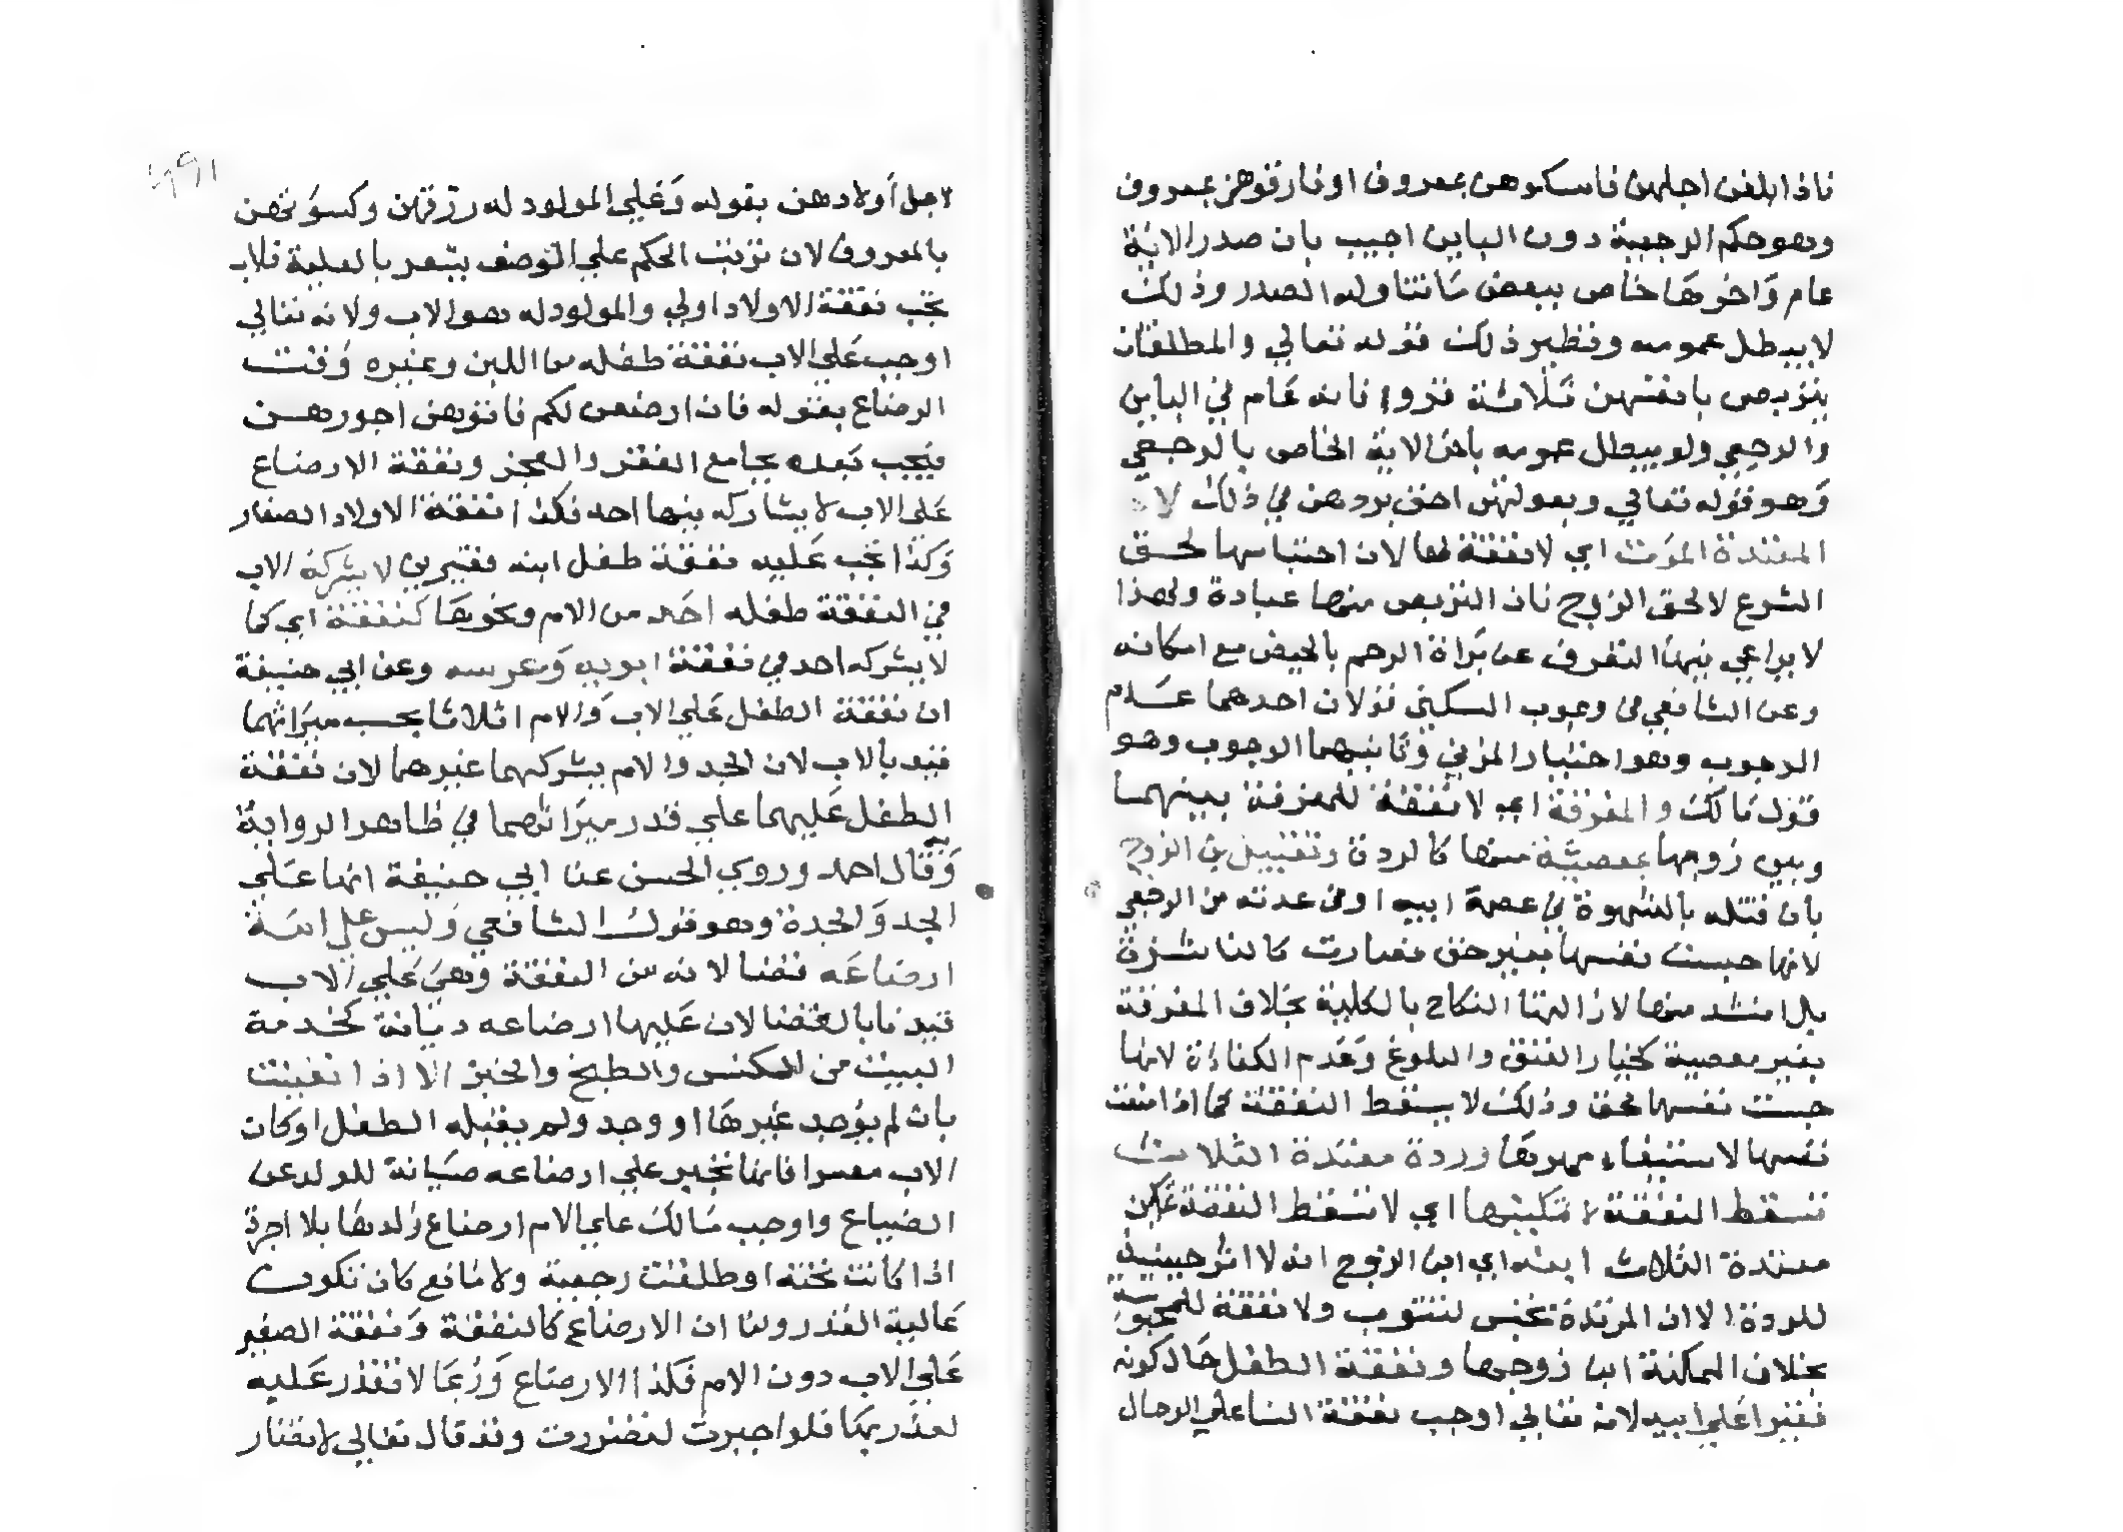 فاذا بلغن اجلهن فامسكوهن بمعروف او فارقوهن بمعروف
وهو حكم الرجعية دون الباين اجيب بان صدر الاية
عام وَاخرهَا خاص ببعض مَا تتناوله الصدر وذلك
لا يبطل عمومه ونظير ذلك قوله تعالي والمطلقات
يتربصن بانفسهن ثلاثة قروء فانه عَام في الباين
والرجعي ولم يبطل عمومه بآخر الاية الخاص بالرجعي
وَهو قوله تعالي وبعولتهن احق بردهن في ذلك لا
المعتدة الموَت اي لا نفقة لها لان احتباسها لحق
الشرع لا لحق الزوج فان التربص منها عبادة ولهذا
لا يراعي فيهَا التعرف عن بَراة الرحم بالحيض مع امكانه
وعن الشافعي في وجوب السكني قولان احدهما عَدم
الوجوب وهو اختيار المزني وَثانيهما الوجوب وهو
قول مَالك والمفرقة اي لا نفقة للمفرقة بينهما
وبين زوجها بمعصيَة منها كالردة وتقبيل بن الزوج
بان قبله بالشهوة في عصمة ابيه او في عدته من الرجعي
لانها حبست نفسها بغير حق فصارت كالناشزة
بل اشد منها لازالتها النكاح بالكلية بخلاف المفرقة
بغير معصية كخيار العتق والبلوغ وَعَدم الكفاءة لانها
حبست نفسها بحق وذلك لا يسقط النفقة كما اذا منعت
نفسها لاستيفاء مهرهَا وردة معتدة الثلاث
تسقط النفقة لا تمكينها اي لا تسقط النفقة تمكين
معتدة الثلاث ابنه اي ابن الزوج انه لا اثر حينيذ
للردة الا ان المرتدة تحبس لتتوب ولا نفقة للمحبوسة
بخلاف الممكنة ابن زوجها ونفقة الطفل حَال كونه
فقيرا عَلي ابيه لانه تعالي اوجب نفقة النسا علي الرجال
١٩٦
لاجل اَولادهن بقوله وَعَلي المولود له رزقهن وكسوَتهن
بالمعروف لان ترتيب الحكم علي الوَصف يشعر بالعلية فلان
تجب نفقة الاولاد اولي والمولود له هو الاب ولانه تعالي
اوجب عَلي الاب نفقة طفله من اللبن وغيره وَقت
الرضاع بقوله فان ارضعن لكم فاتوهن اجورهن
فيَجب بَعده بجامع الفقر والعجز ونفقة الارضاع
عَلي الاب لا يشاركه فيها احد فكذا نفقة الاولاد الصغار
وَكذا تجب عَليه نفقة طفل ابنه فقيرين لا يشركه الاب
في النفقة طفله احَد من الام ونحوهَا كنفقة اي كما
لا يشركه احد في نفقة ابويه وَعرسه وعن ابي حنيفة
ان نفقة الطفل عَلي الاب وَالام اثلاثا بحسب ميرَاثهما
قيد بالاب لان الجد والام يشركهما غيرهما لان نفقة
الطفل عَليهما علي قدر ميرَاثهما في ظاهر الرواية
وَبه قال احمد وروي الحسن عن ابي حنيفة انها عَلي
الجد وَالجدة وهو قول الشافعي وَليس علي امه
ارضاعَه قضا لانه من النفقة وَهيَ عَلي الاب
قيدنا بالقضا لان عَليها ارضاعه ديَانة كخدمة
البيت من الكنس والطبخ والخبز الا اذا تعينت
بان لم يوجد غيرهَا او وجد ولم يقبله الطفل او كان
الاب معسرا فانها تجبر علي ارضاعه صيَانة للولد عن
الضياع واوجب مَالك علي الام ارضاع وَلدهَا بلا اجرة
اذا كانت تحته او طلقت رجعية ولا مَانع كان تكون
عَالية القدر ولنا ان الارضاع كالنفقة وَنفقة الصغير
عَلي الاب دون الام فكذا الارضاع وَرُبمَا لا تقدر عَليه
لعذر بهَا فلو اجبرت لتضررت وقد قال تعالي لا تضار